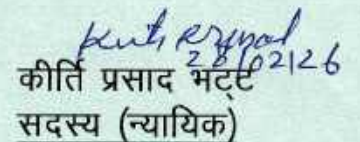 20/02/26
कीर्ति प्रसाद भट्ट
सदस्य (न्यायिक)